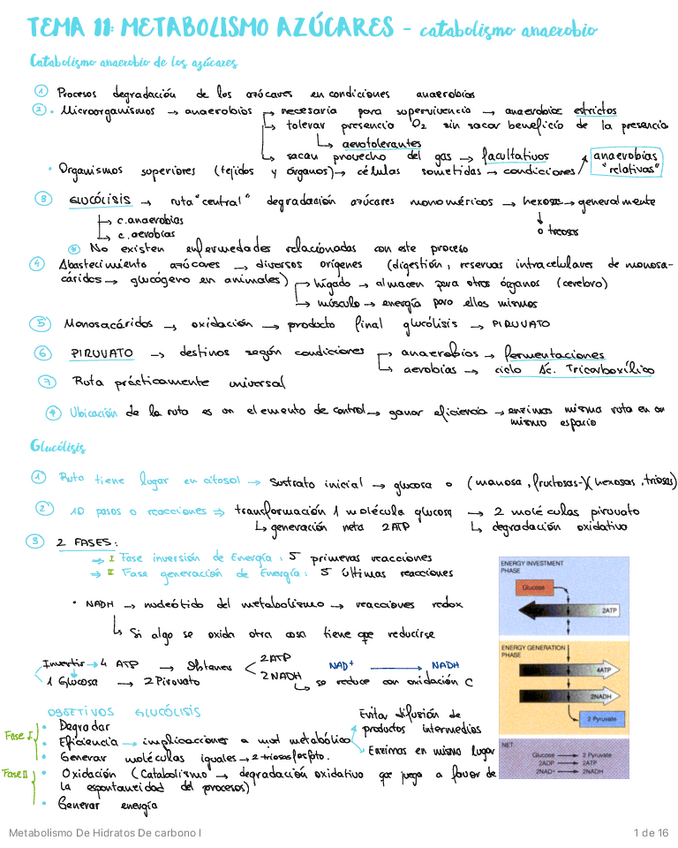 TEMA 11: METABOLISMO AZÚCARES - catabolismo anaerobio
Catabolismo anaerobio de los azúcares
① Procesos degradación de los azúcares en condiciones anaerobias
②. • Microorganismos → anaerobios → necesaria para supervivencia → anaerobios estrictos
→ tolerar presencia O₂ sin sacar beneficio de la presencia
→ aerotolerantes
→ sacan provecho del gas → facultativos
• Organismos superiores (tejidos y órganos) → células sometidas → condiciones anaerobias "relativas"
③ GLUCÓLISIS → ruta "central" degradación azúcares monoméricos → hexosas → generalmente
→ c. anaerobias
→ c. aerobias
o triosas
⊛ No existen enfermedades relacionadas con este proceso
④ Abastecimiento azúcares → diversos orígenes (digestión, reservas intracelulares de monosa-
cáridos → glucógeno en animales) → hígado → almacen para otros órganos (cerebro)
→ músculo → energía para ellos mismos
⑤ Monosacáridos → oxidación → producto final glucólisis → PIRUVATO
⑥ PIRUVATO → destinos según condiciones → anaerobias → fermentaciones
→ aerobias → ciclo Ac. Tricarboxílico
⑦ Ruta prácticamente universal
Ubicación de la ruta es un elemento de control → ganar eficiencia → enzimas misma ruta en un
mismo espacio
Glucólisis
① Ruta tiene lugar en citosol → Sustrato inicial → glucosa o (manosa, fructosas-)(hexosas, triosas)
② 10 pasos o reacciones ⇒ transformación 1 molécula glucosa → 2 moléculas piruvato
↳ generación neta 2ATP ↳ degradación oxidativa
③ 2 FASES:
⇒ I Fase inversión de Energía: 5 primeras reacciones
⇒ II Fase generación de Energía: 5 últimas reacciones
• NADH → nucleótido del metabolismo → reacciones redox
↳ Si algo se oxida otra cosa tiene que reducirse
Invertir → 4 ATP → Obtener 2ATP
2NADH
NAD⁺ → NADH
↳ se reduce con oxidación C
1 Glucosa → 2 Piruvato
OBJETIVOS GLUCÓLISIS
Fase I
• Degradar
• Eficiencia → implicaciones a nivel metabólico
Evitar difusión de
productos intermedios
Enzimas en mismo lugar
• Generar moléculas iguales → 2 triosas fosfato.
Fase II
• Oxidación (Catabolismo → degradación oxidativa que juega a favor de
la espontaneidad del procesos)
• Generar energía
ENERGY INVESTMENT
PHASE
Glucose
2ATP
ENERGY GENERATION
PHASE
4ATP
2NADH
2 Pyruvate
NET
Glucose → 2 Pyruvate
2ADP → 2ATP
2NAD⁺ → 2NADH
Metabolismo De Hidratos De carbono I
1 de 16